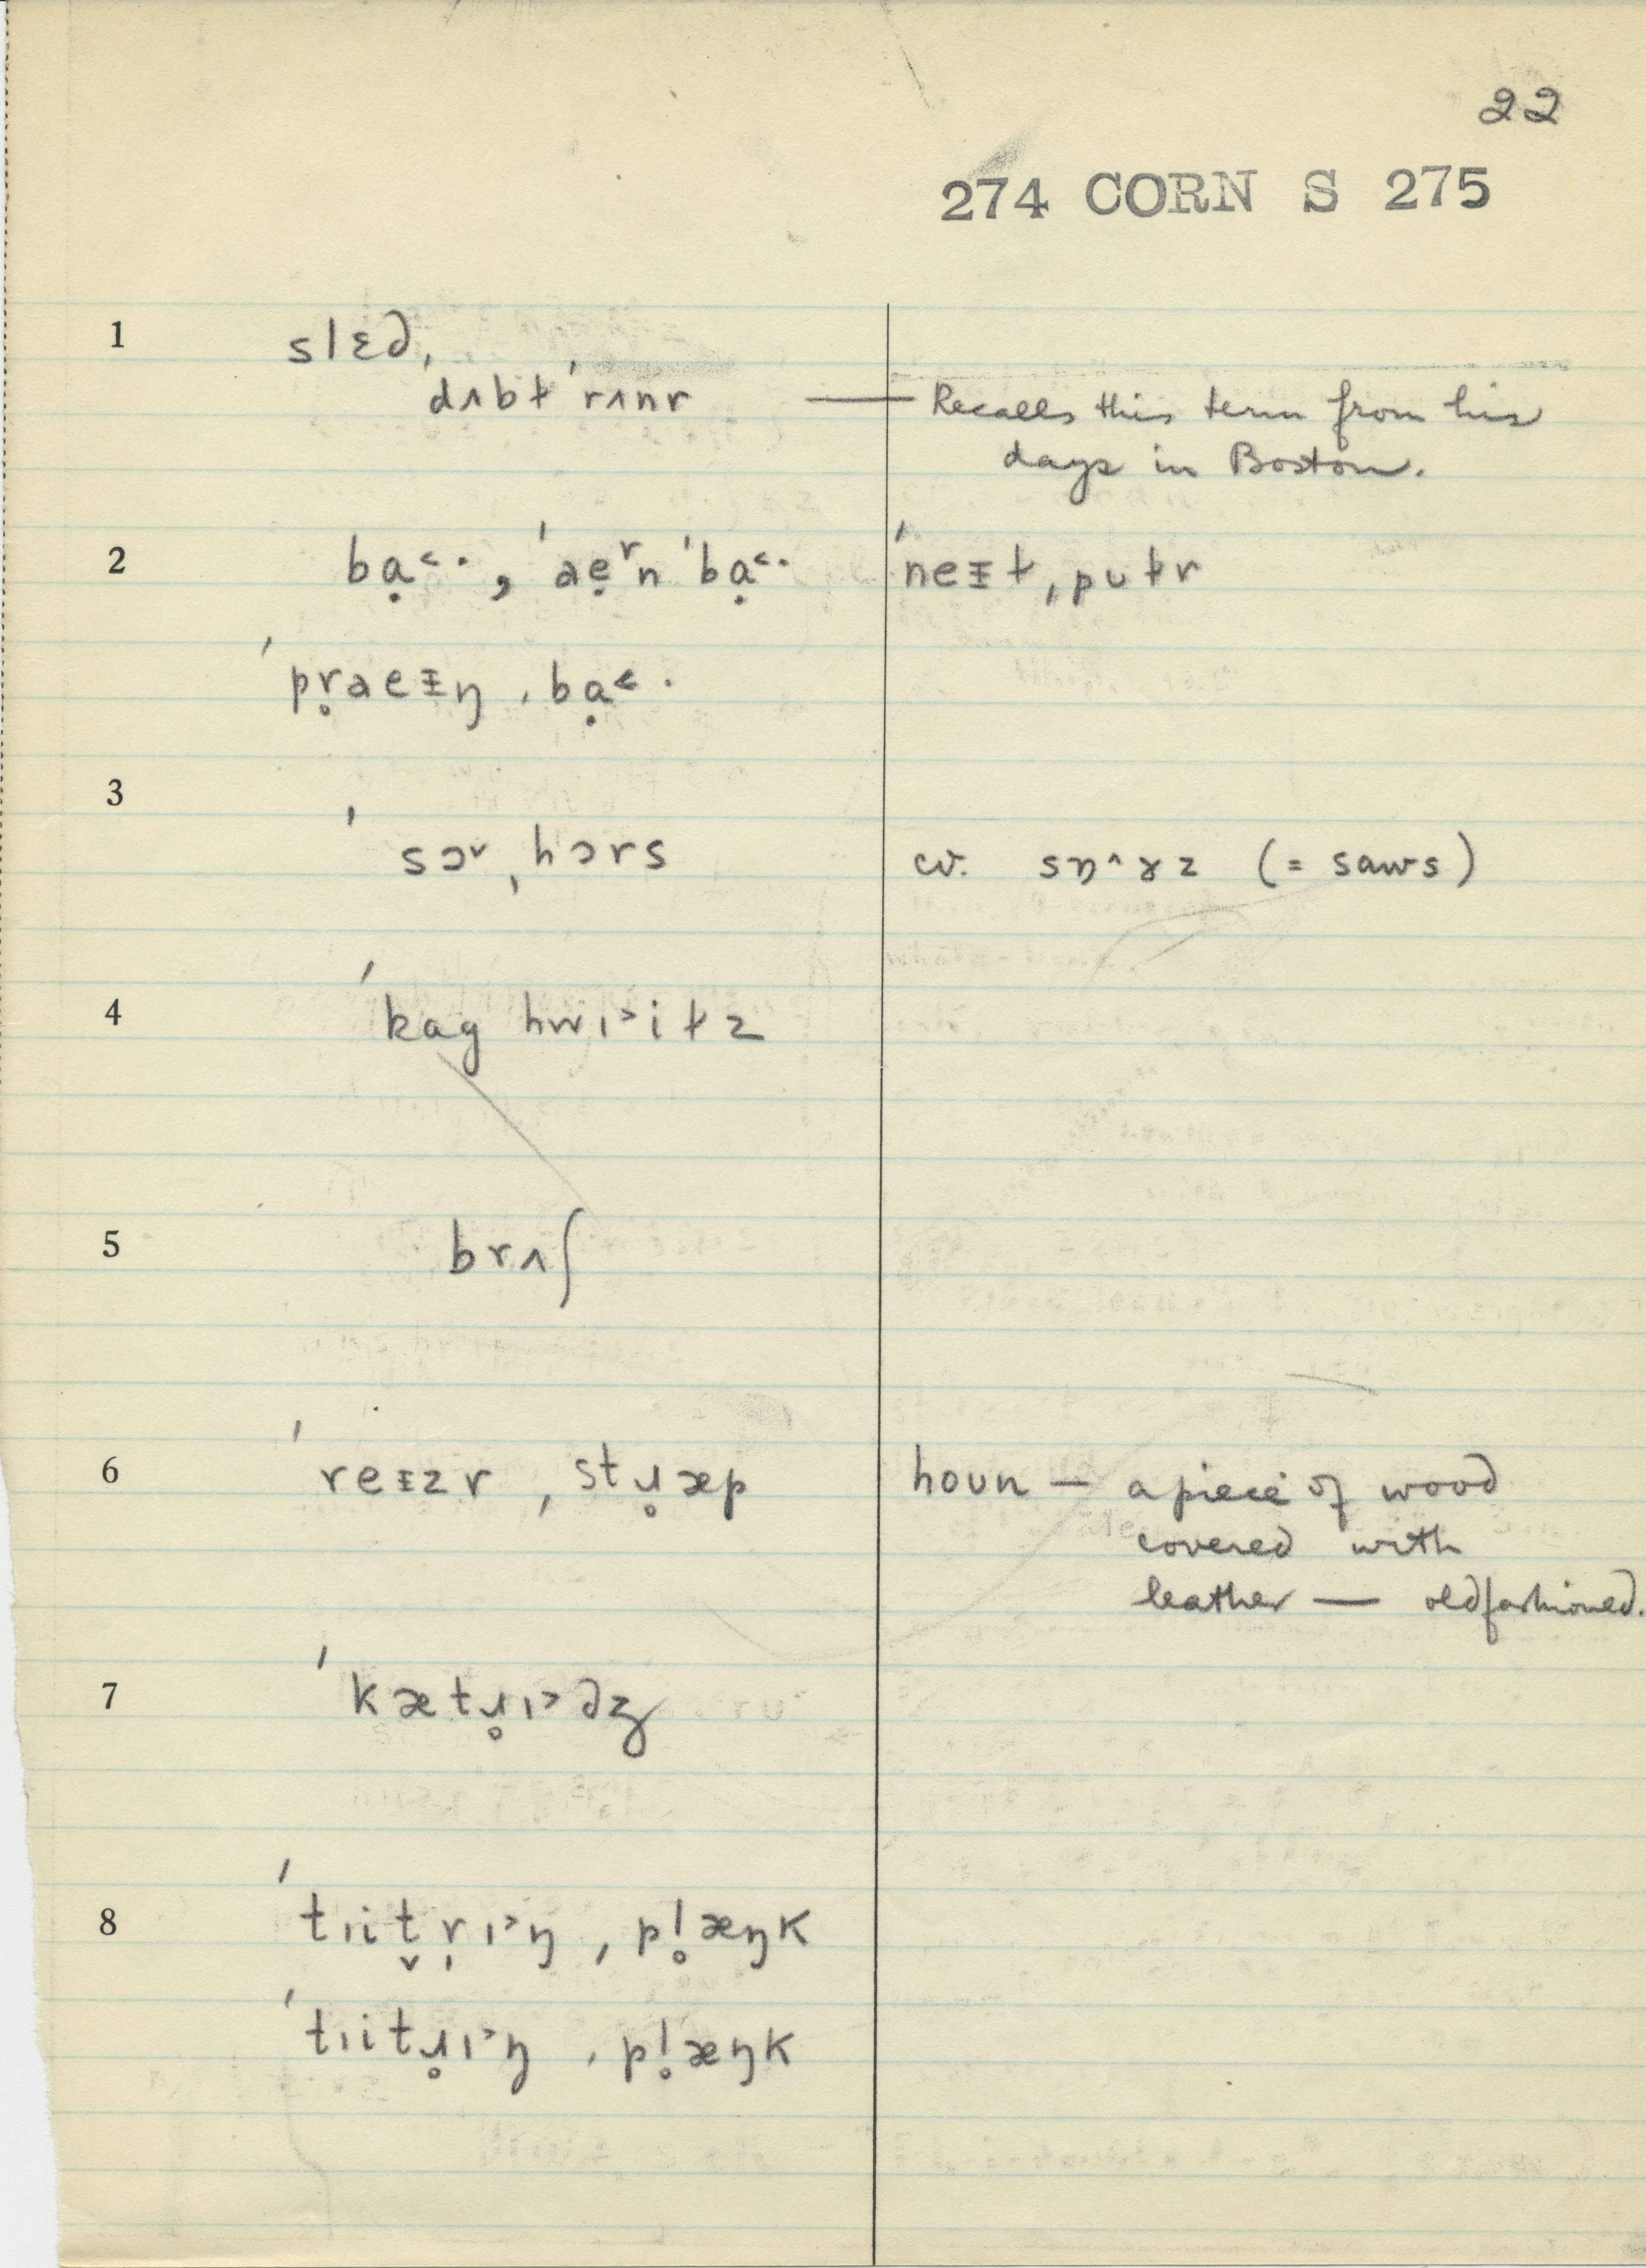 22
274 CORN S 275
1 slɛd,
ˈdʌbɫ ˈrʌnr — Recalls this term from his
days in Boston.
2 bạ˂·, ˈaẹʳn ˈbạ˂· ˈneᵻɫ ˌpʊɫr
ˈpr̥aeᵻŋ ˌbạ˂·
3 ˈsɔᵛ ˌhɔrs cv. sɒ^ɤz (= saws)
4 ˈkag hwɪ˃iɫz
5 brʌʃ
6 ˈreᵻzr ˌstɹ̥æp houn — a piece of wood
covered with
leather — oldfashioned.
7 ˈkætɹ̥ɪ˃dʒ
8 ˈtɪit̬r̩ɪ˃ŋ ˌpl̥æŋk
ˈtɪitɹ̥ɪ˃ŋ ˌpl̥æŋk